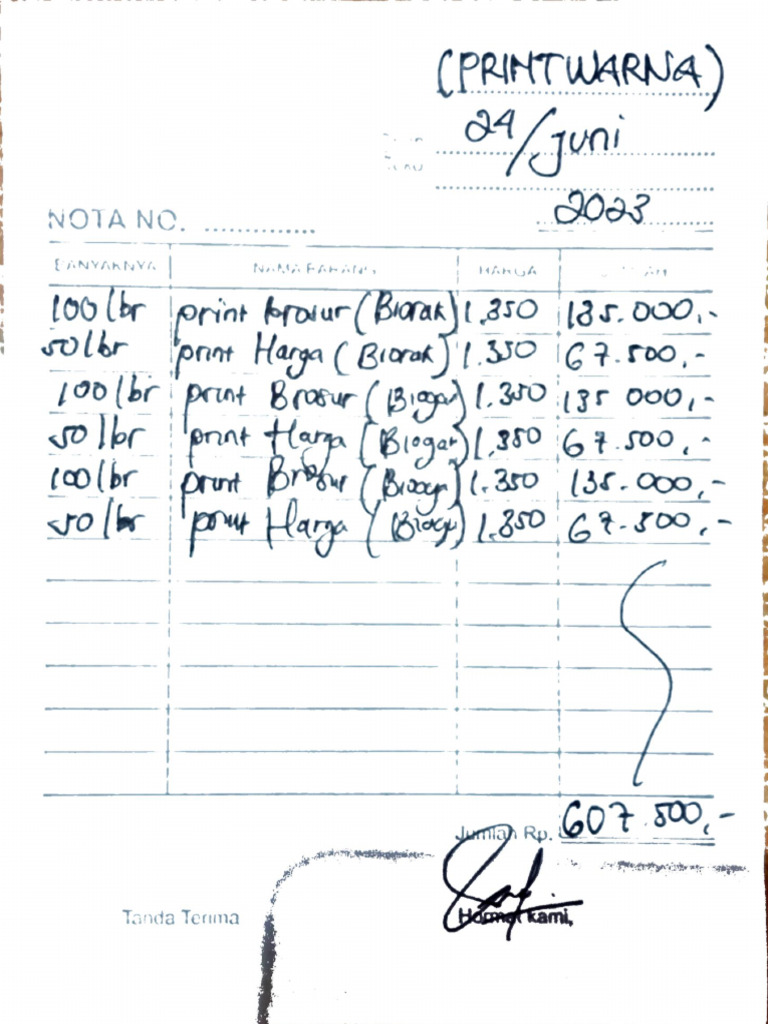 (PRINT WARNA)
24/Juni
2023
NOTA NO. ..............
BANYAKNYA NAMA BARANG HARGA JUMLAH
100 lbr print brosur (Biorak) 1.350 135.000,-
50 lbr print Harga (Biorak) 1.350 67.500,-
100 lbr print Brosur (Biogar) 1.350 135 000,-
50 lbr print Harga (Biogar) 1.350 67.500,-
100 lbr print Brosur 1.350 135.000,-
50 lbr print Harga 1.350 67.500,-
Jumlah Rp. 607.500,-
Tanda Terima Hormat kami,